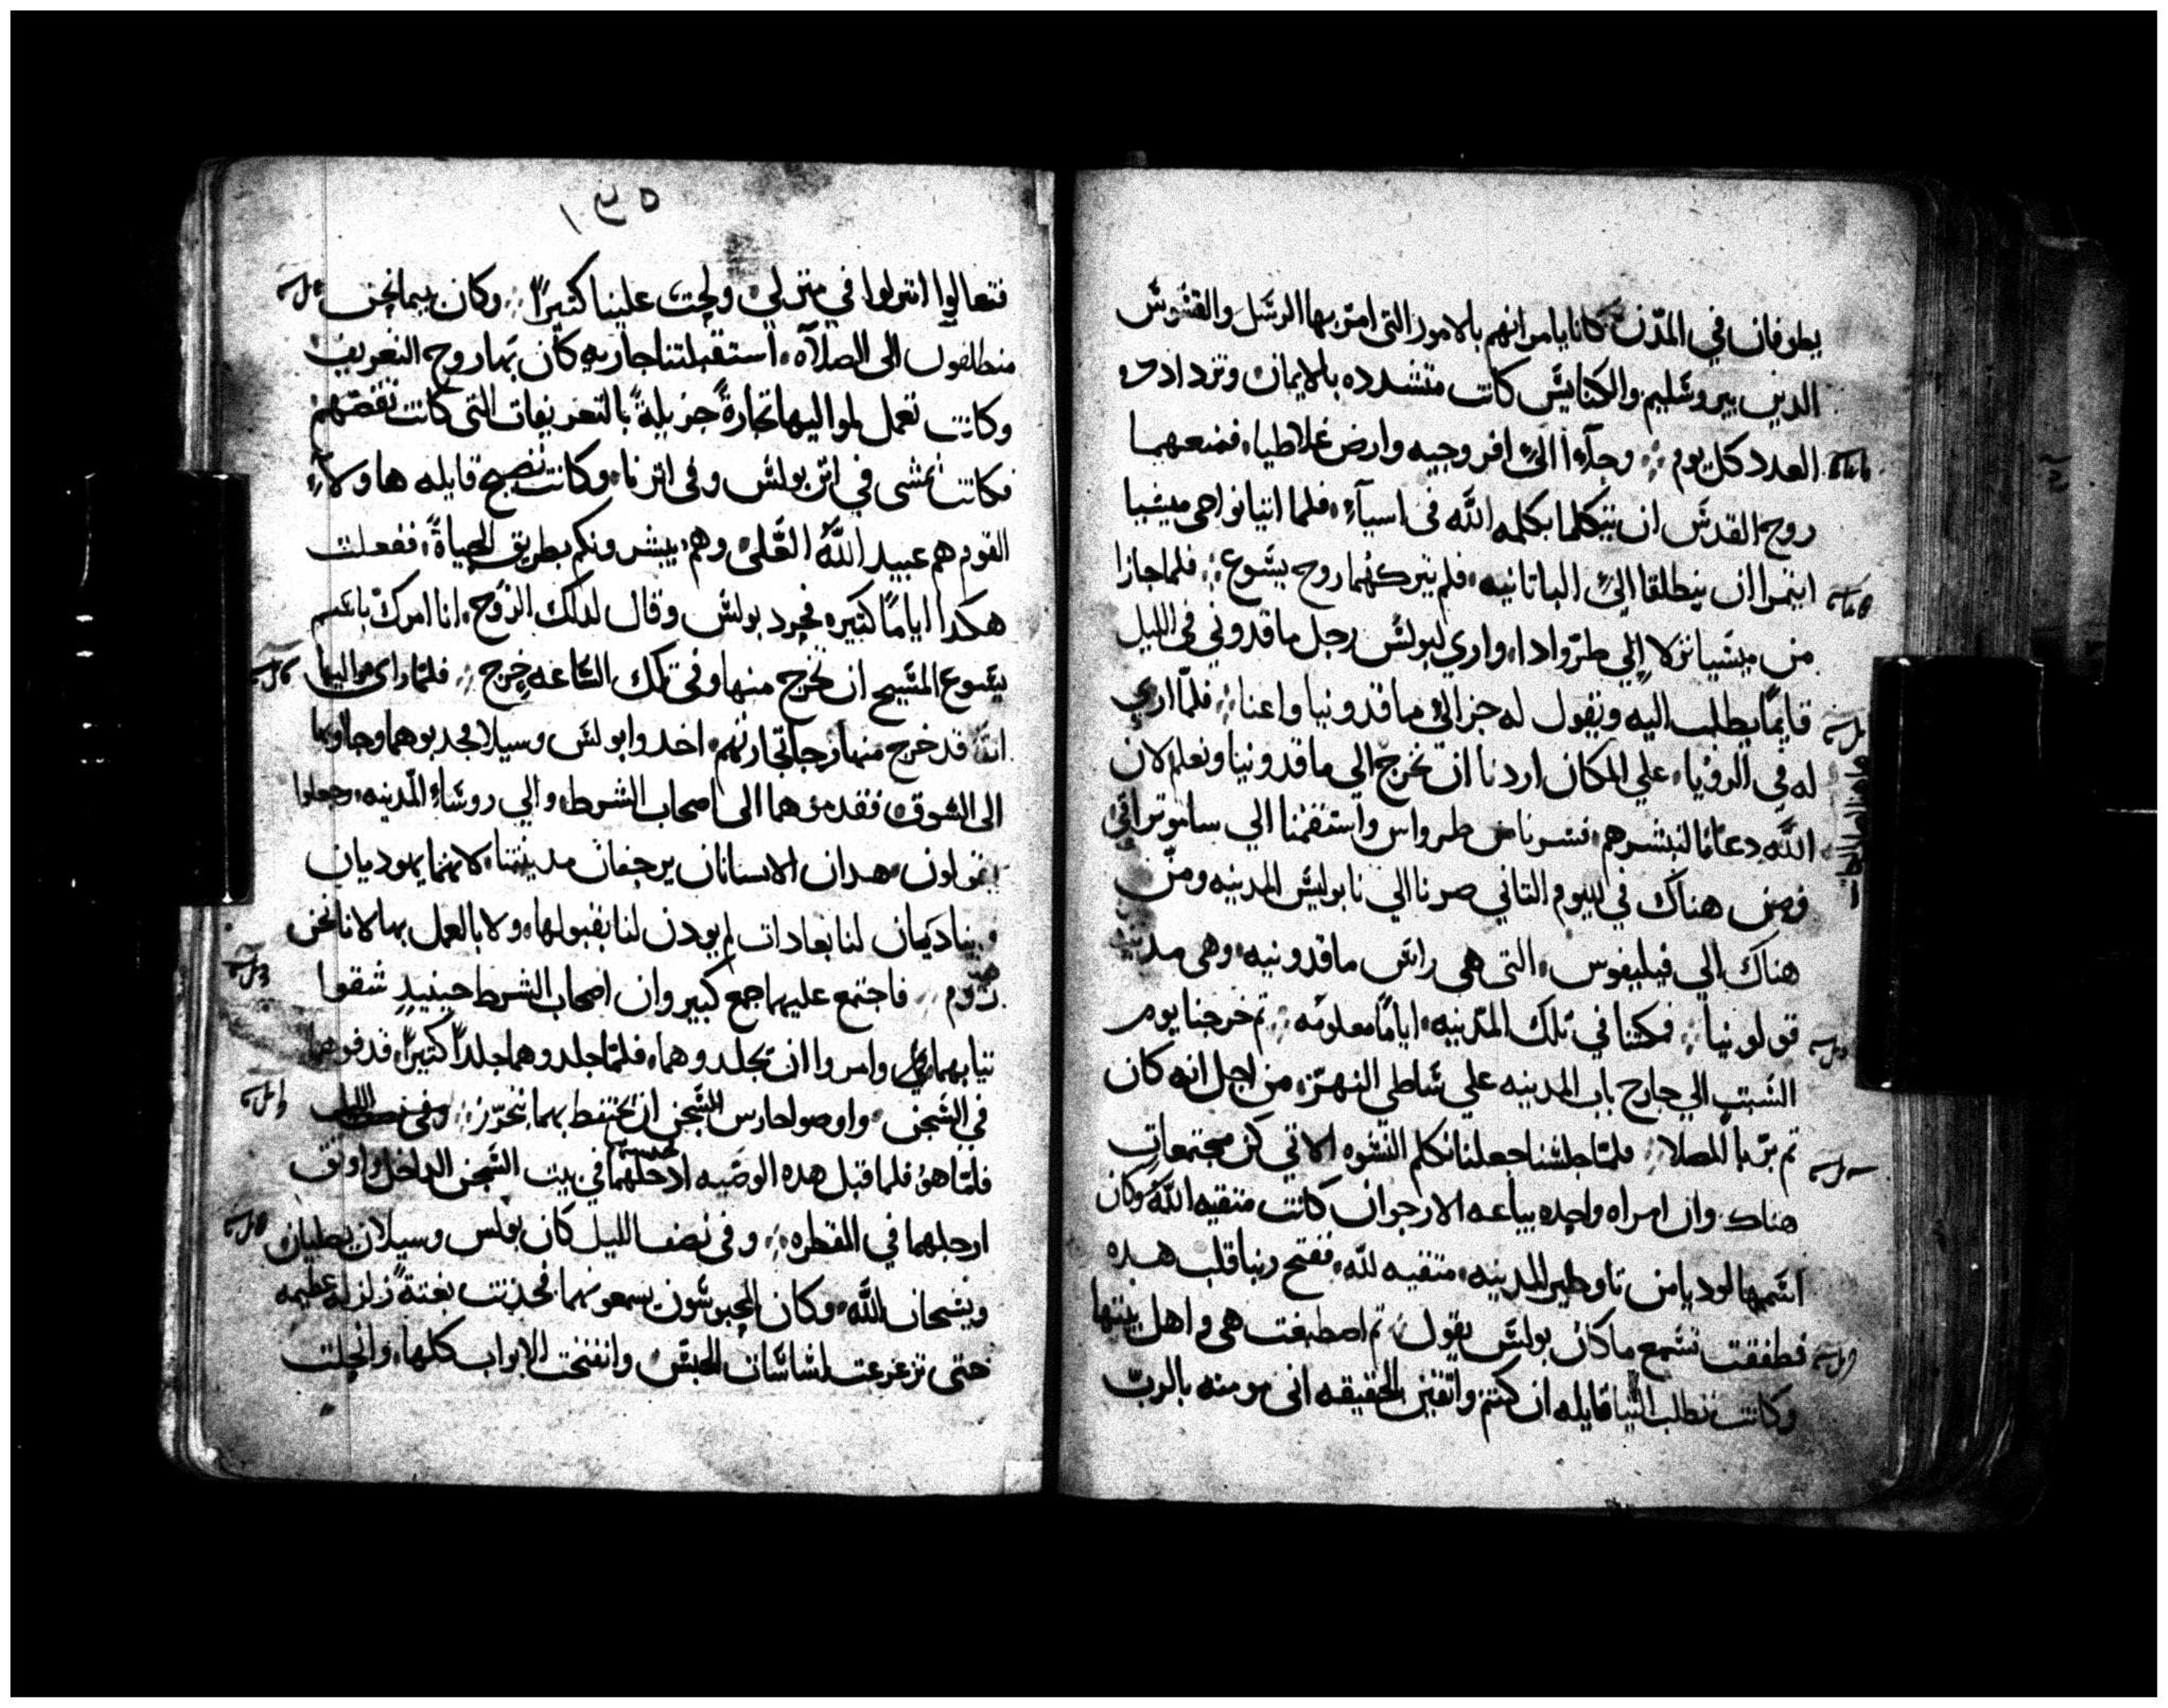 يطوفان في المدن كانا يامرانهم بالامور التي امر بها الرسل والقسوس
الدين بيروشليم والكنايس كانت متشدده بالايمان وتزداد في
العدد كل يوم وجآءا الى افروجيه وارض غلاطيا فمنعهما
روح القدس ان يتكلما بكلمه الله في اسيآء فلما اتيا نواحي ميسيا
ايتمرا ان ينطلقا الى الباتانيه فلم يتركهما روح يسوع فلما جازا
من ميسيا نزلا الي طرواداء واري لبولس رجل ماقدوني في الليل
قايمًا يطلب اليه ويقول له جز الى ماقدونيا واعنا فلما اري
له في الرويا علي المكان اردنا ان نخرج الي ماقدونيا ونعلم لان
الله دعانا لنبشرهم فسرنا من طرواس واستقمنا الي ساموتراقي
ومن هناك في اليوم التاني صرنا الي نابوليس المدينه ومن
هناك الي فيليفوس التي هي راس ماقدونيه وهي مدينه
قولونيا فمكثنا في تلك المدينه اياما معلومه تم خرجنا يوم
السبت الي خارج باب المدينه علي شاطى النهر من اجل انه كان
تم يرى المصلا فلما جلسنا جعلنا نكلم النسوه الاتي كن مجتمعات
هناك وان امراه واحده بياعه الارجوان كانت متقيه الله وكان
اسمها لوديا من تاوطير المدينه متقيه لله ففتح ربنا قلب هده
فطفقت تسمع ما كان بولس يقول تم اصطبغت هي واهل بيتها
وكانت تطلب الينا قايله ان كنتم واتقين بالحقيقه اني مومنه بالرب
١٣٥
فتعالوا انزلوا في منزلي ولجت علينا كثيرًا وكان بيما نحن
منطلقون الى الصلآه استقبلتنا جاريه كان بها روح التعريف
وكانت تعمل لمواليها تجارةً جزيلةً بالتعريفات التي كانت تقصهم
فكانت تمشي في اثر بولس وفي اثرنا وكانت تصيح قايله هاولاء
القوم هم عبيد الله العلى وهم يبشرونكم بطريق الحياة ففعلت
هكدا اياما كثيره فحرد بولس وقال لدلك الروح انا امرك باسم
يسوع المسيح ان تخرج منها وفي تلك الساعه خرج فلما راى مواليها
انه قد خرج منها رجا تجارتهم اخدوا بولس وسيلا فجدبوهما وجاوا بهما
الى السوق فقدموهما الى اصحاب الشرط والي روساء المدينه وجعلوا
يقولون هدان الانسانان يرجفان مدينتنا لانهما يهوديان
ويناديان لنا بعادات لم يودن لنا بقبولها ولا بالعمل بها لاننا نحن
روم فاجتمع عليهما جمع كبير وان اصحاب الشرط حينيد شقوا
تيابهما وامروا ان تجلدوهما فلما جلدوهما جلدًا كثيرًا قدفوهما
في السجن واوصوا حارس السجن ان يحتفظ بهما بتحرز وفي نصف الليل
فلما هو فلما قبل هده الوصيه ادخلهما في بيت السجن الداخل واوتق
ارجلهما في المقطره وفي نصف الليل كان بولس وسيلان يصليان
ويسبحان الله وكان المحبوسون يسمعونهما فحدتت بغتةً زلزله عظيمه
حتى تزعزعت اساسات الحبس وانفتحت الابواب كلها وانحلت